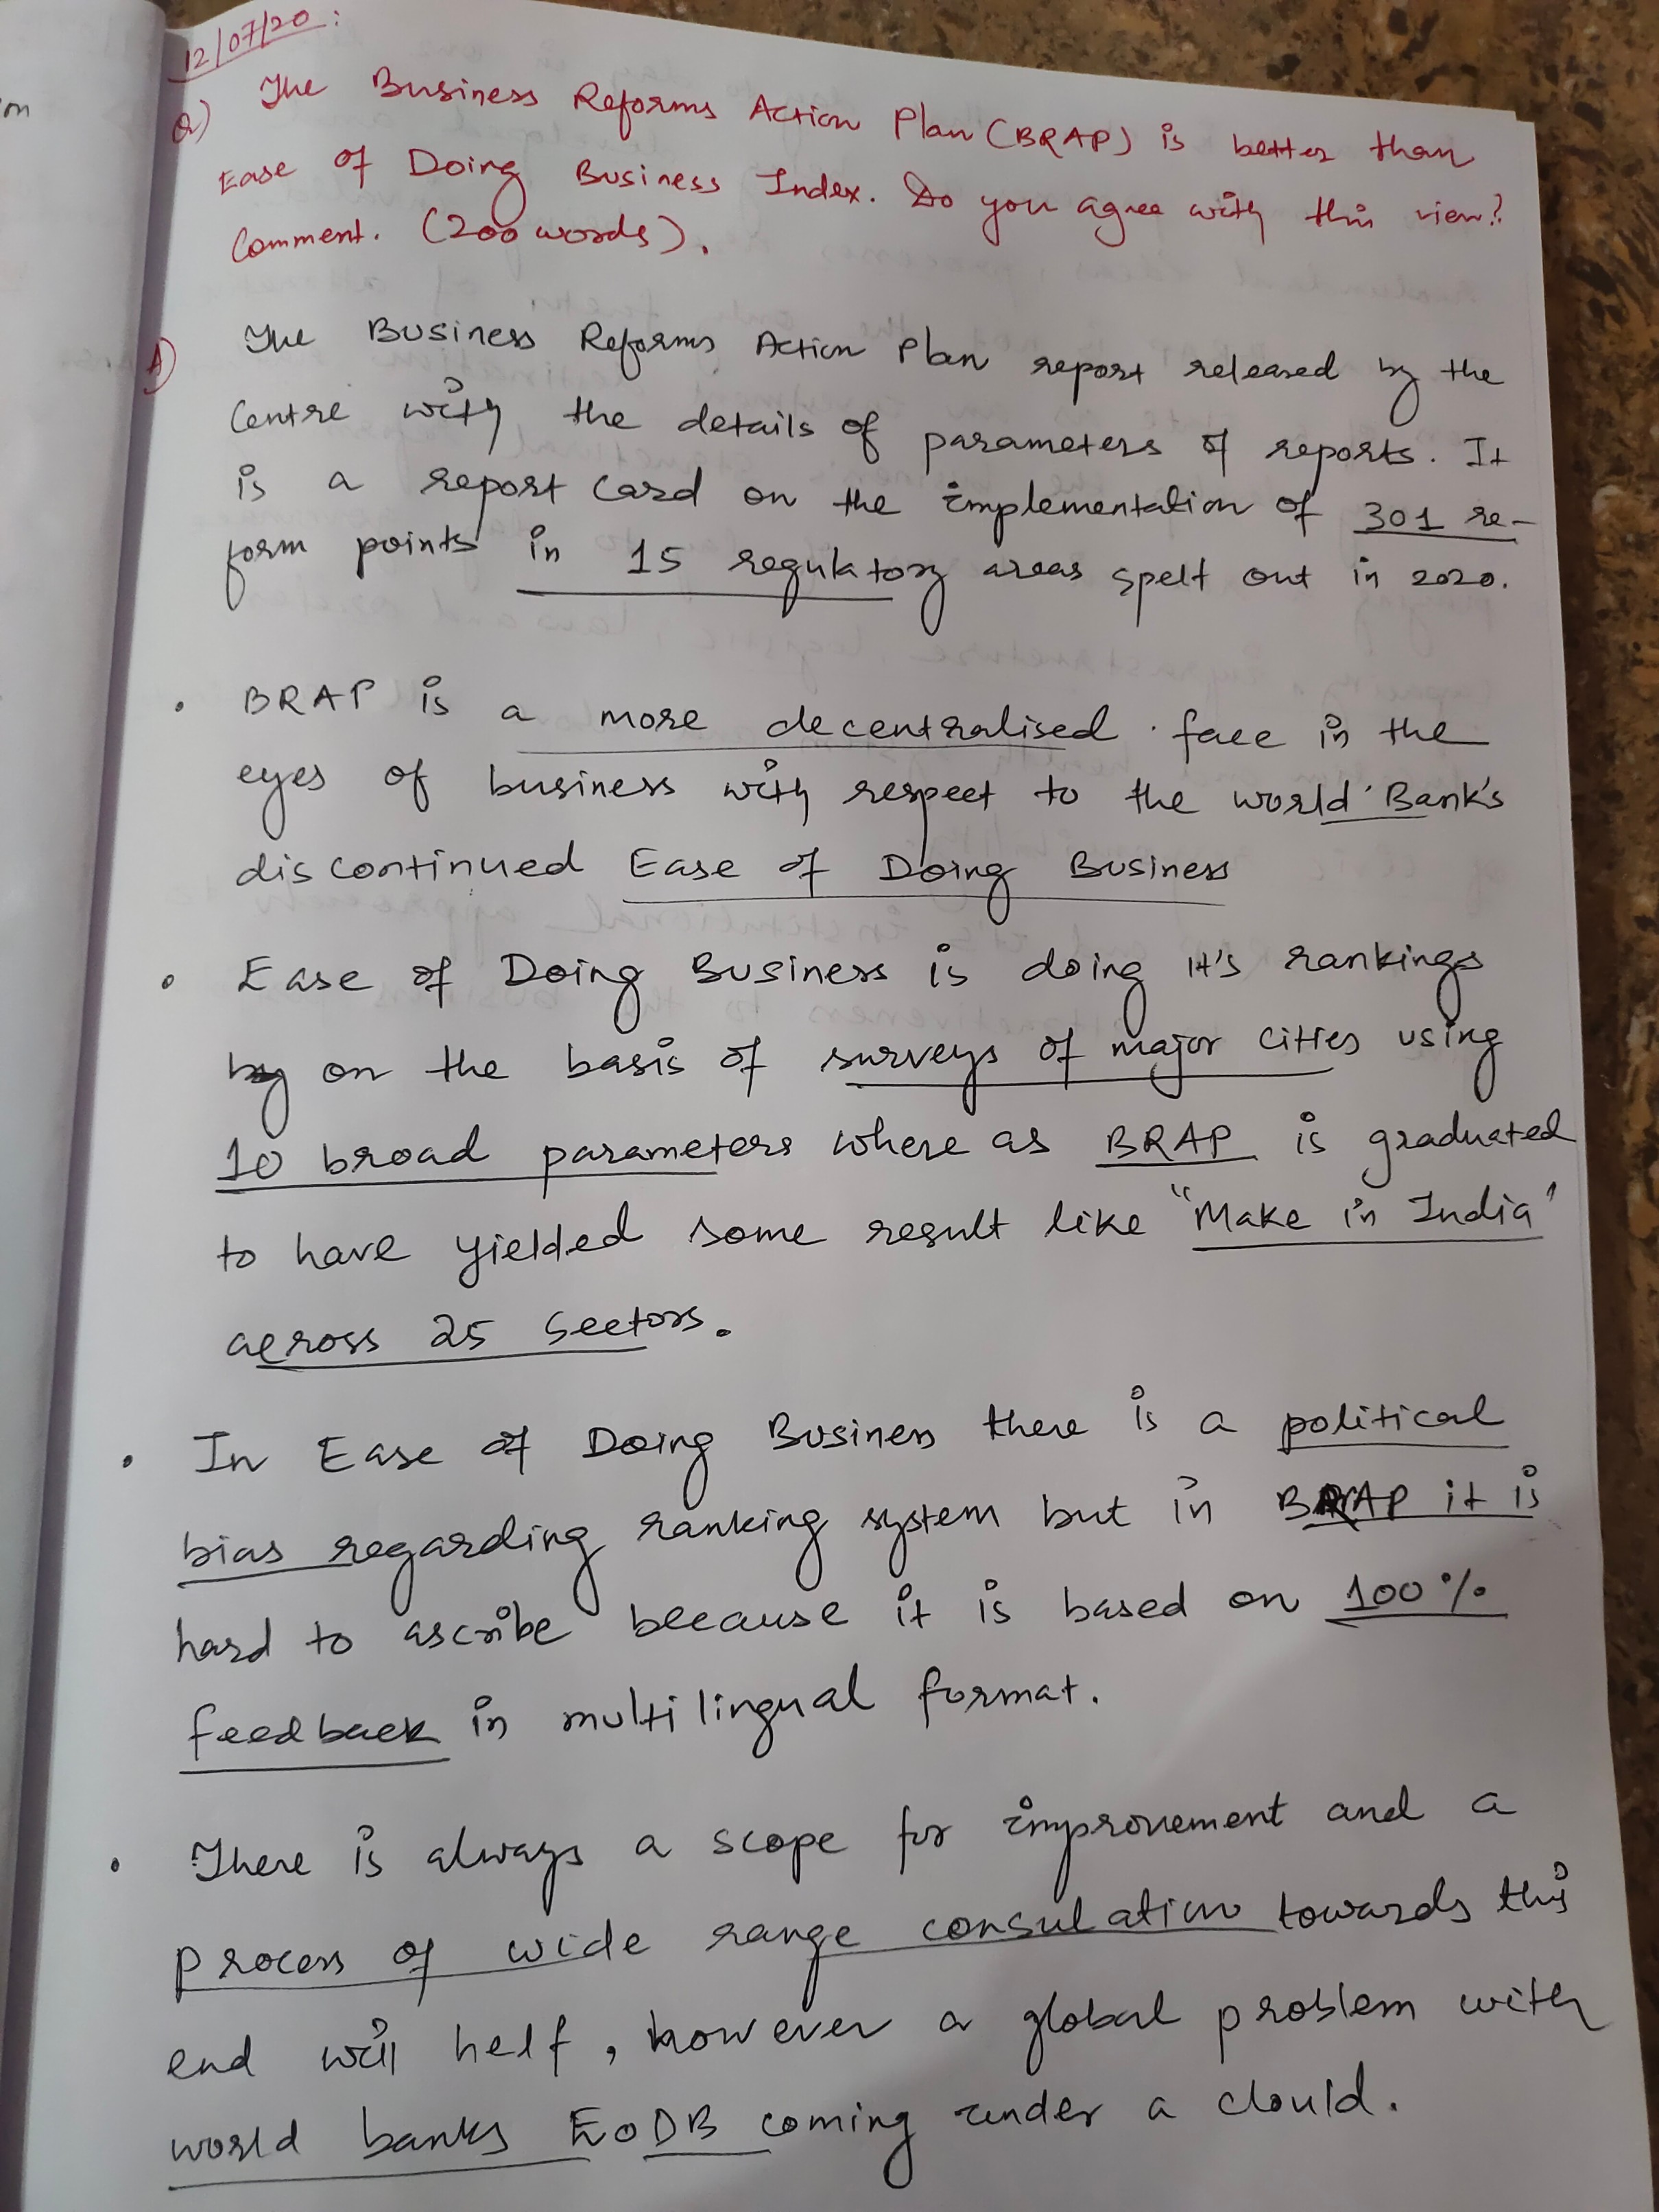 12/07/20:
Q) The Business Reforms Action Plan (BRAP) is better than
Ease of Doing Business Index. Do you agree with this view?
Comment. (200 words).
A) The Business Reforms Action Plan report released by the
Centre with the details of parameters of reports. It
is a report card on the implementation of 301 re-
form points in 15 regulatory areas spelt out in 2020.
• BRAP is a more decentralised face in the
eyes of business with respect to the world Bank's
discontinued Ease of Doing Business
• Ease of Doing Business is doing it's rankings
by on the basis of surveys of major cities using
10 broad parameters where as BRAP is graduated
to have yielded some result like "Make in India"
across 25 sectors.
• In Ease of Doing Business there is a political
bias regarding ranking system but in BRAP it is
hard to ascribe because it is based on 100%
feedback in multilingual format.
• There is always a scope for improvement and a
process of wide range consulation towards this
end will helf, however a global problem with
world banks EoDB coming under a clould.